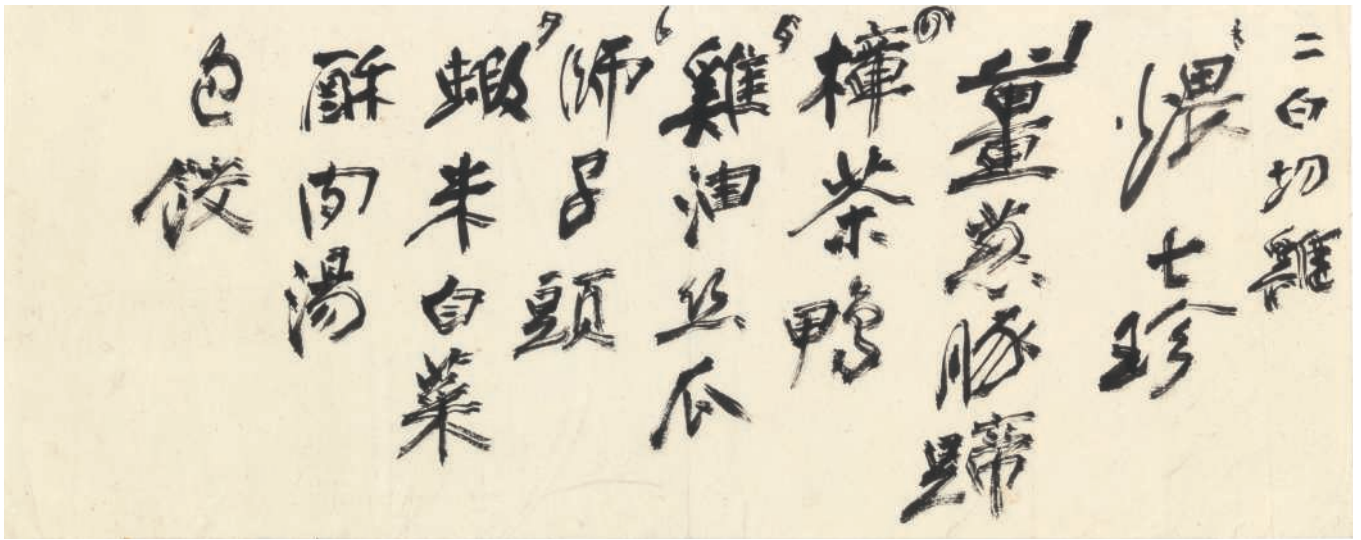 二白切雞
煨七珍
薑葱豚蹄
四樟茶鴨
5雞油丝瓜
6師子頭
7蝦米白菜
酥肉湯
包餃